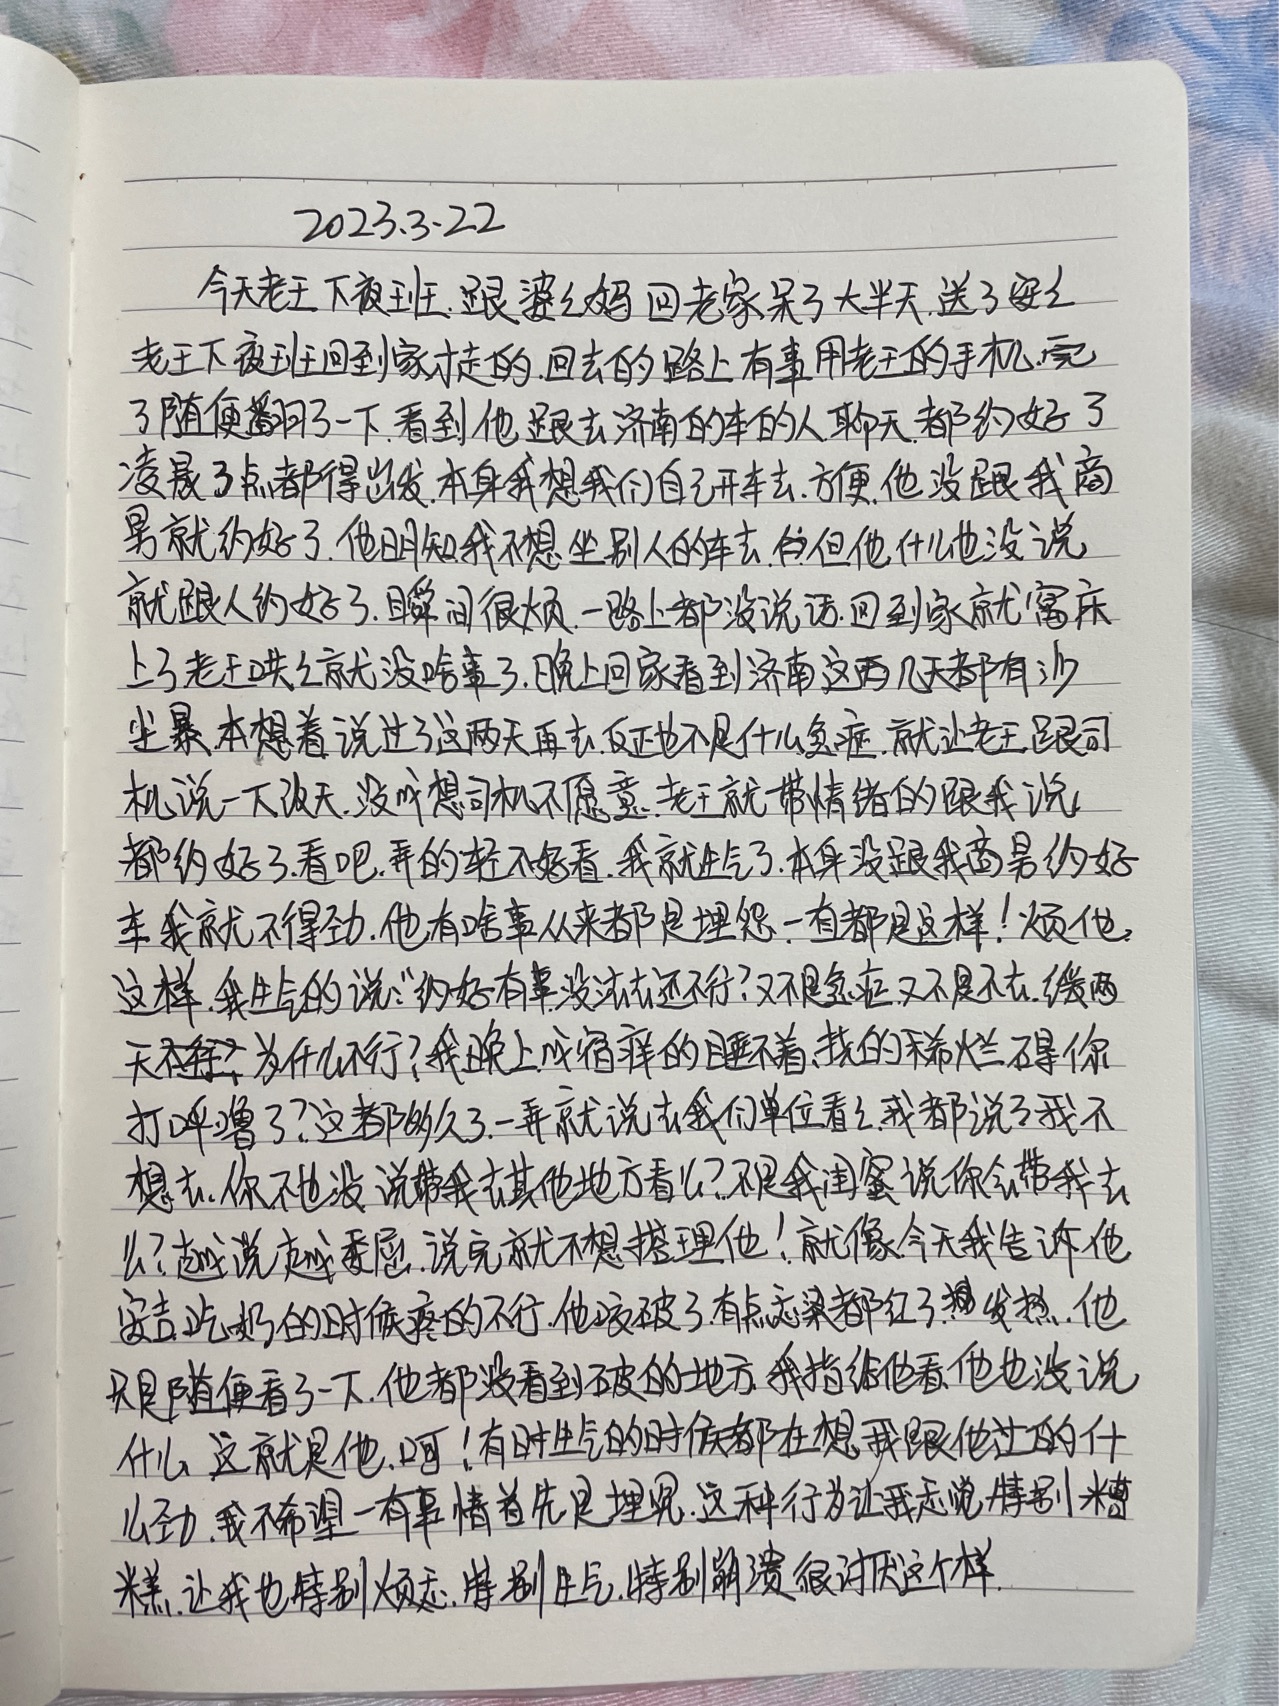 2023.3.22
今天老王下夜班.跟婆婆妈回老家呆了大半天.送了安安
老王下夜班回到家才走的.回去的路上有事用老王的手机.完
了随便翻了一下.看到他跟去济南的车的人聊天.都约好了
凌晨3点都得出发.本身我想我们自己开车去.方便.他没跟我商
男就约好了.他明知我不想坐别人的车去.但他什么也没说
就跟人约好了.瞬间很烦.一路上都没说话.回到家就窝床
上了老王哄哄就没啥事了.晚上回家看到济南这两几天都有沙
尘暴.本想着说过了这两天再去.反正也不是什么急症.就让老王跟司
机说一下改天.没成想司机不愿意.老王就带情绪的跟我说
都约好了.看吧.弄的轻不好看.我就生气了.本身没跟我商男约好
车我就不得劲.他有啥事从来都是埋怨.一直都是这样!烦他
这样.我生气的说:"约好有事没法去还不行?又不是急症又不是不去.缓两
天不行?为什么不行?我晚上成宿痒的睡不着.挠的稀烂碍你
打呼噜了?这都多久了.一弄就说去我们单位看看.我都说了我不
想去.你不也没说带我去其他地方看么?不是我闺蜜说你会带我去
么?越说越委屈.说完就不想搭理他!就像今天我告诉他
安吉吃奶的时候疼的不行.他咬破了.有点感染都红了发热.他
只是随便看了一下.他都没看到破的地方.我指给他看.他也没说
什么.这就是他.呵!有时生气的时候都在想我跟他过的什
么劲.我不希望一有事情首先是埋怨.这种行为让我感觉特别糟
糕.让我也特别烦恋.特别生气.特别崩溃很讨厌这个样.